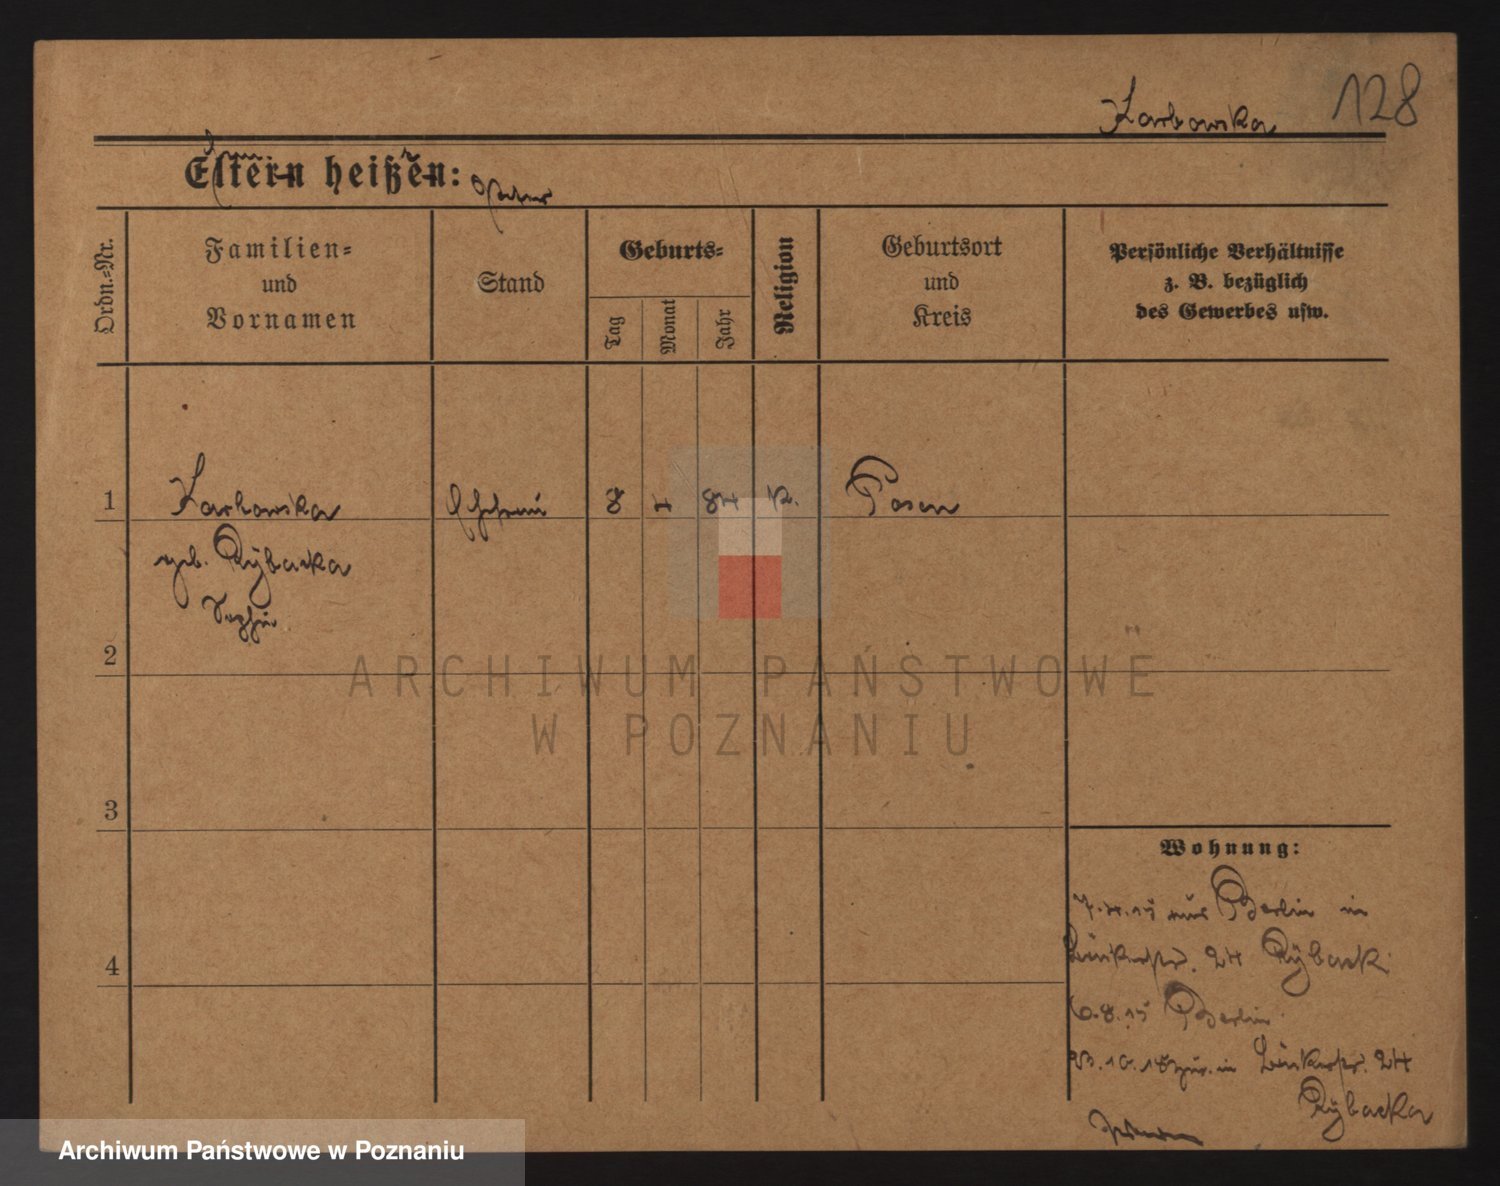 Karbowska 128
Eltern heißen:
Ordn.-Nr.
Familien-
und
Vornamen
Stand
Geburts-
Tag
Monat
Jahr
Religion
Geburtsort
und
Kreis
Persönliche Verhältnisse
z. B. bezüglich
des Gewerbes usw.
1 Karbowska Ehefrau 8 4 84 k. Posen
geb. Rybacka
Sophie
2
ARCHIWUM PAŃSTWOWE
W POZNANIU
3
Wohnung:
7.4.15 aus Berlin in
24 Rybacki
4
6.8.15 Berlin
23.10.15 zur. in 24
Rybacka
Archiwum Państwowe w Poznaniu